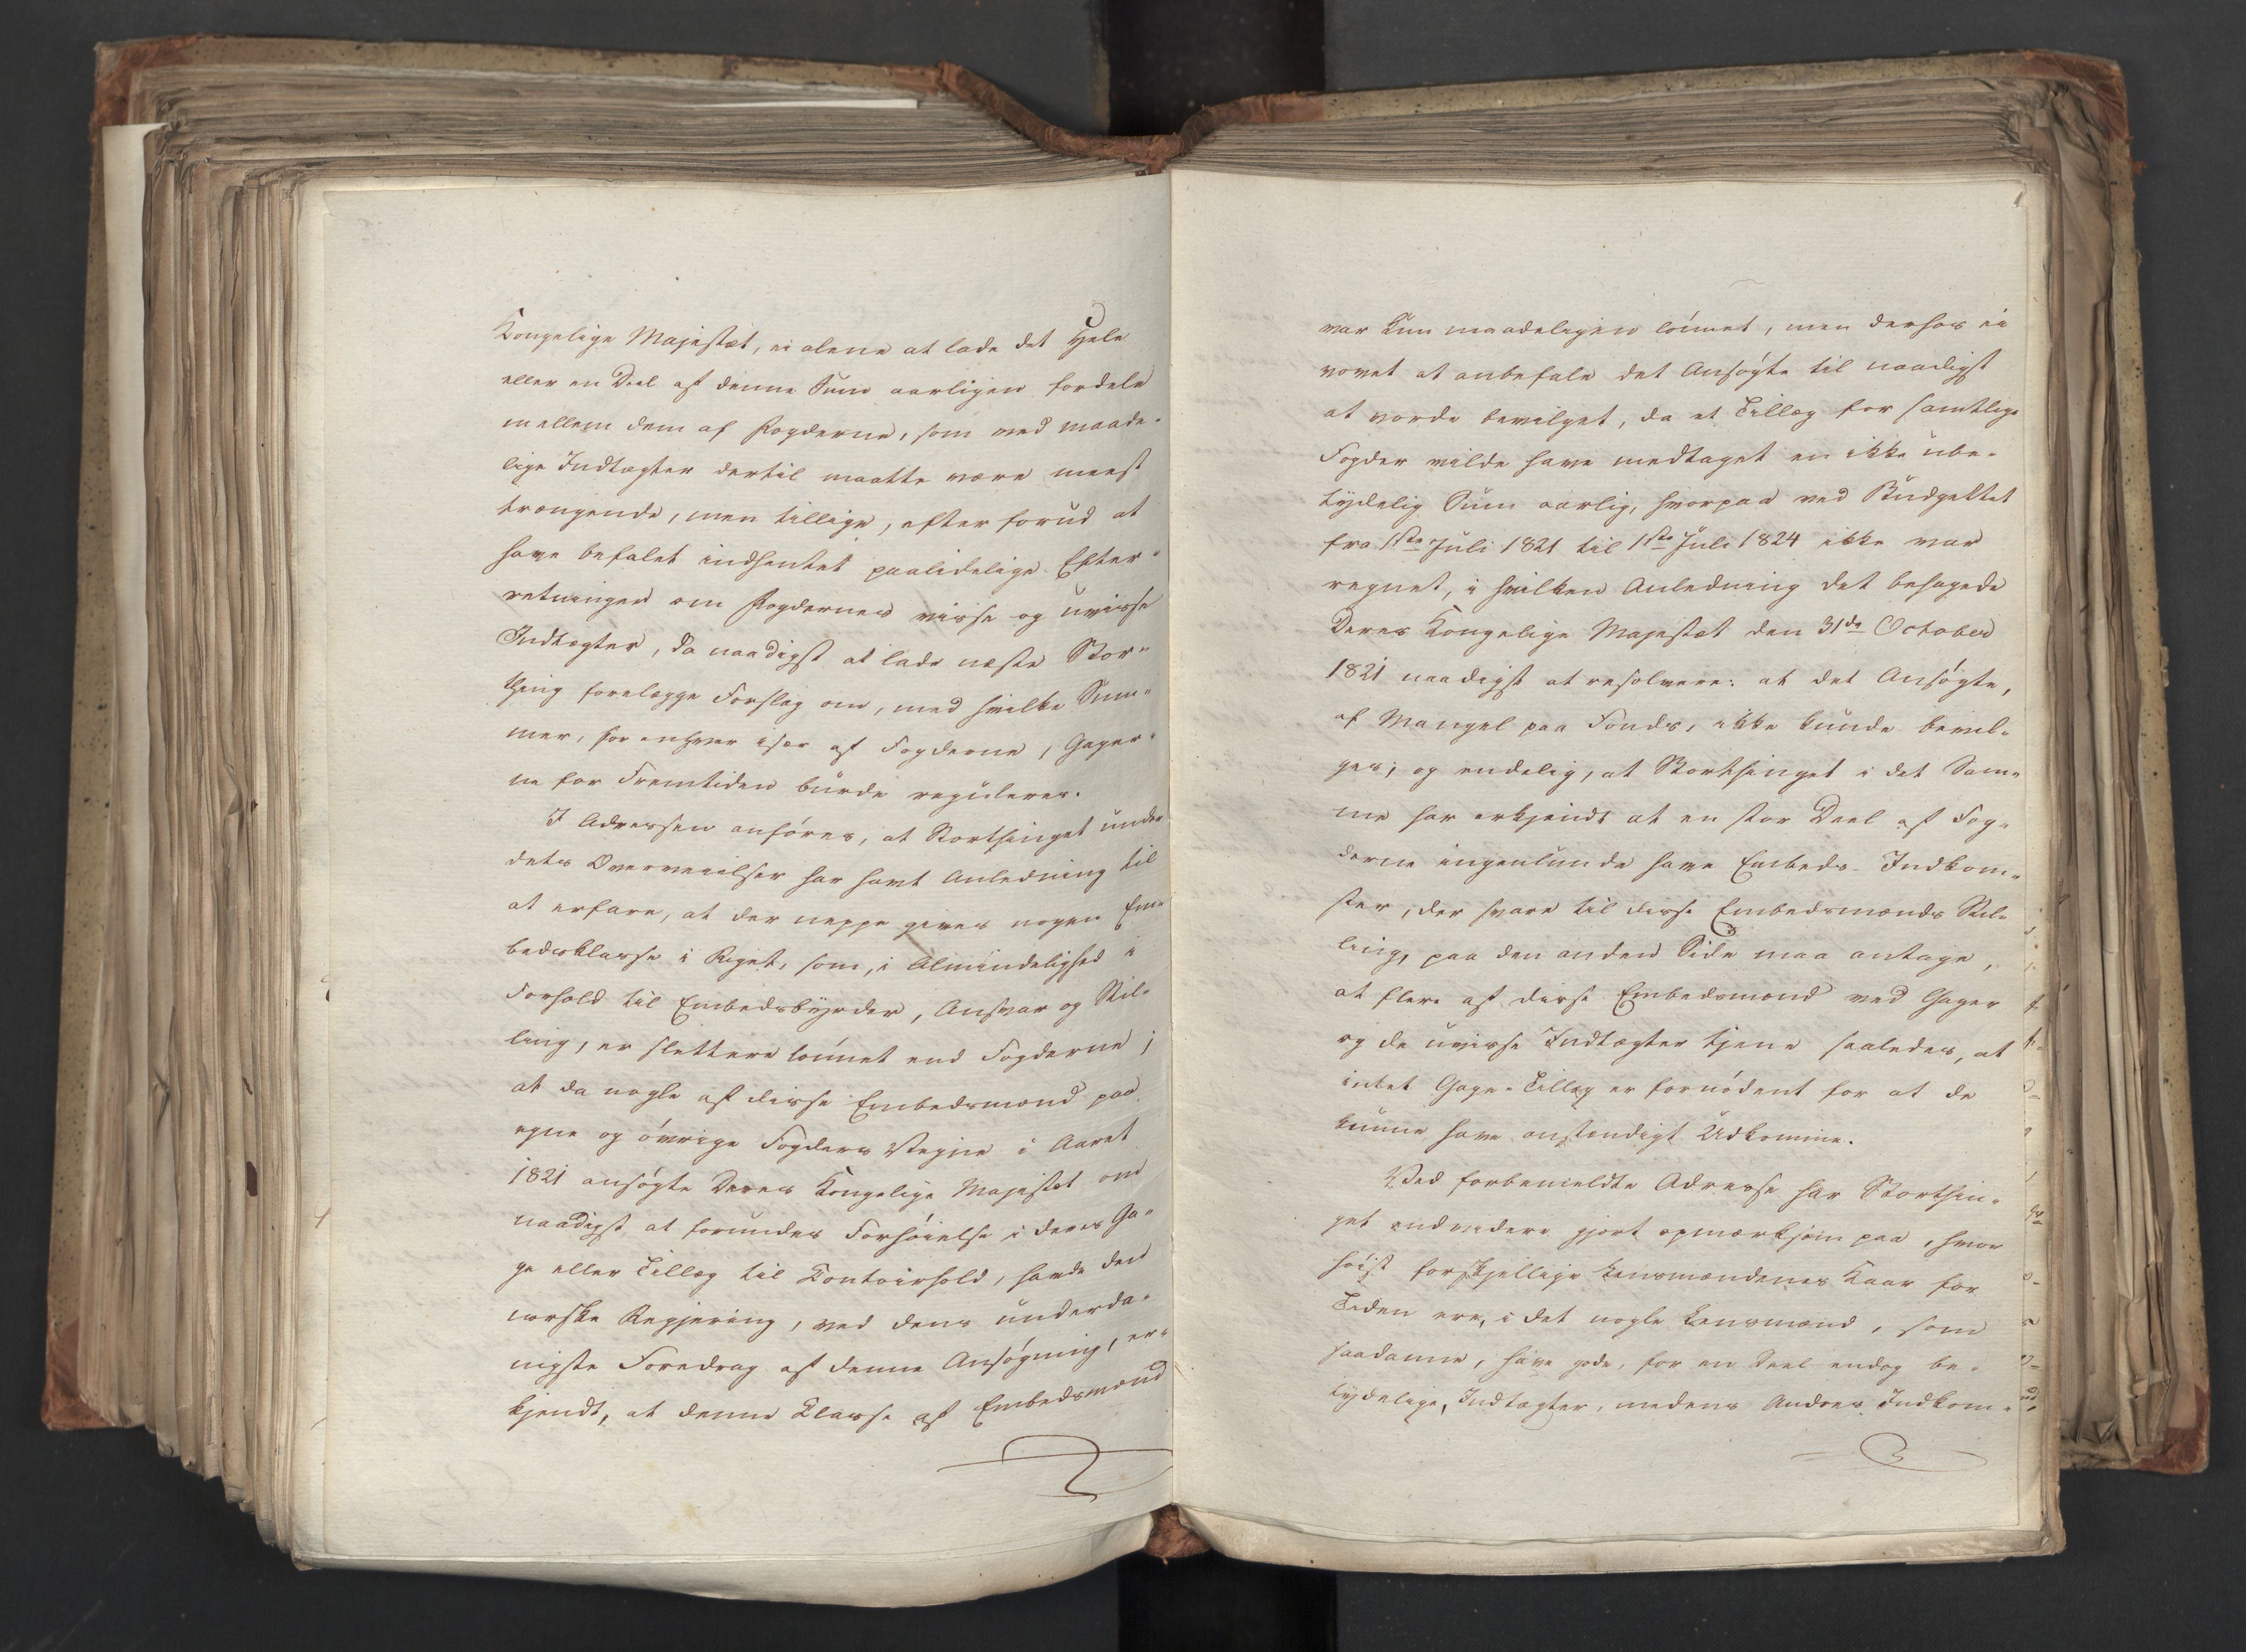 Kongelige Majestæt, ei alene at lade det Hele
eller en Deel af denne Sum aarligen fordele
mellem dem af Fogderne, som ved maade-
lige Indtægter dertil maatte være meest
trængende, men tillige, efter forud at
have befalet indhentet paalidelige Efter-
retninger om Fogdernes visse og uvisse
Indtægter, da naadigst at lade næste Stor-
thing forelægge Forslag om, med hvilke Sum-
mer, for enhver især af Fogderne, Gager-
ne for Fremtiden burde reguleres.
I Adressen anføres, at Storthinget under
dets Overveielser har havt Anledning til
at erfare, at der neppe gives nogen Em-
bedsklasse i Riget, som, i Almindelighed i
Forhold til Embedsbyrder, Ansvar og Stil-
ling, er slettere lønnet end Fogderne;
at da nogle af disse Embedsmænd paa
egne og øvrige Fogders Vegne i Aaret
1821 ansøgte Deres Kongelige Majestæt om
naadigst at forundes Forhøielse i deres Ga-
ge eller Tillæg til Contoirhold, havde den
norske Regjering, ved dens underda-
nigste Foredrag af denne Ansøgning, er-
kjendt, at denne Classe af Embedsmænd
var kun maadeligen lønnet, men derhos ei
vovet at anbefale det Ansøgte til naadigst
at vorde bevilget, da et Tillæg for samtlige
Fogder vilde have medtaget en ikke ube-
tydelig Sum aarlig, hvorpaa ved Budgettet
fra 1ste Juli 1821 til 1ste Juli 1824 ikke var
regnet, i hvilken Anledning det behagede
Deres Kongelige Majestæt den 31de October
1821 naadigst at resolvere: at det Ansøgte,
af Mangel paa Fonds, ikke kunde bevil-
ges; og endelig, at Storthinget i det Sam-
me har erkjendt at en stor Deel af Fog-
derne ingenlunde have Embeds-Indkom-
ster, der svare til disse Embedsmænds Stil-
ling, paa den anden Side maa antage,
at flere af disse Embedsmænd ved Gager
og de uvisse Indtægter tjene saaledes, at
intet Gage-Tillæg er fornødent for at de
kunne have anstændigt Udkomme.
Ved forbemeldte Adresse har Storthin-
get endvidere gjort opmærksom paa, hvor
høist forskjellige Lensmændenes Kaar for
Tiden ere, i det nogle Lensmænd, som
saadanne, have gode, for en Deel endog be-
tydelige, Indtægter, medens Andres Indkom-